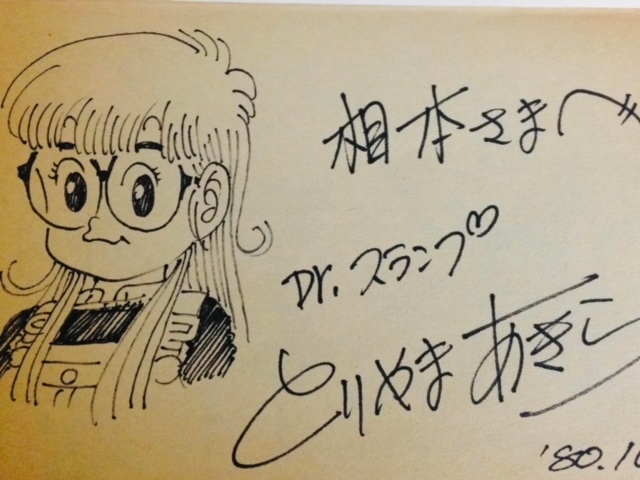 相本さまへ
Dr.スランプ♡
とりやまあきら
'80.10